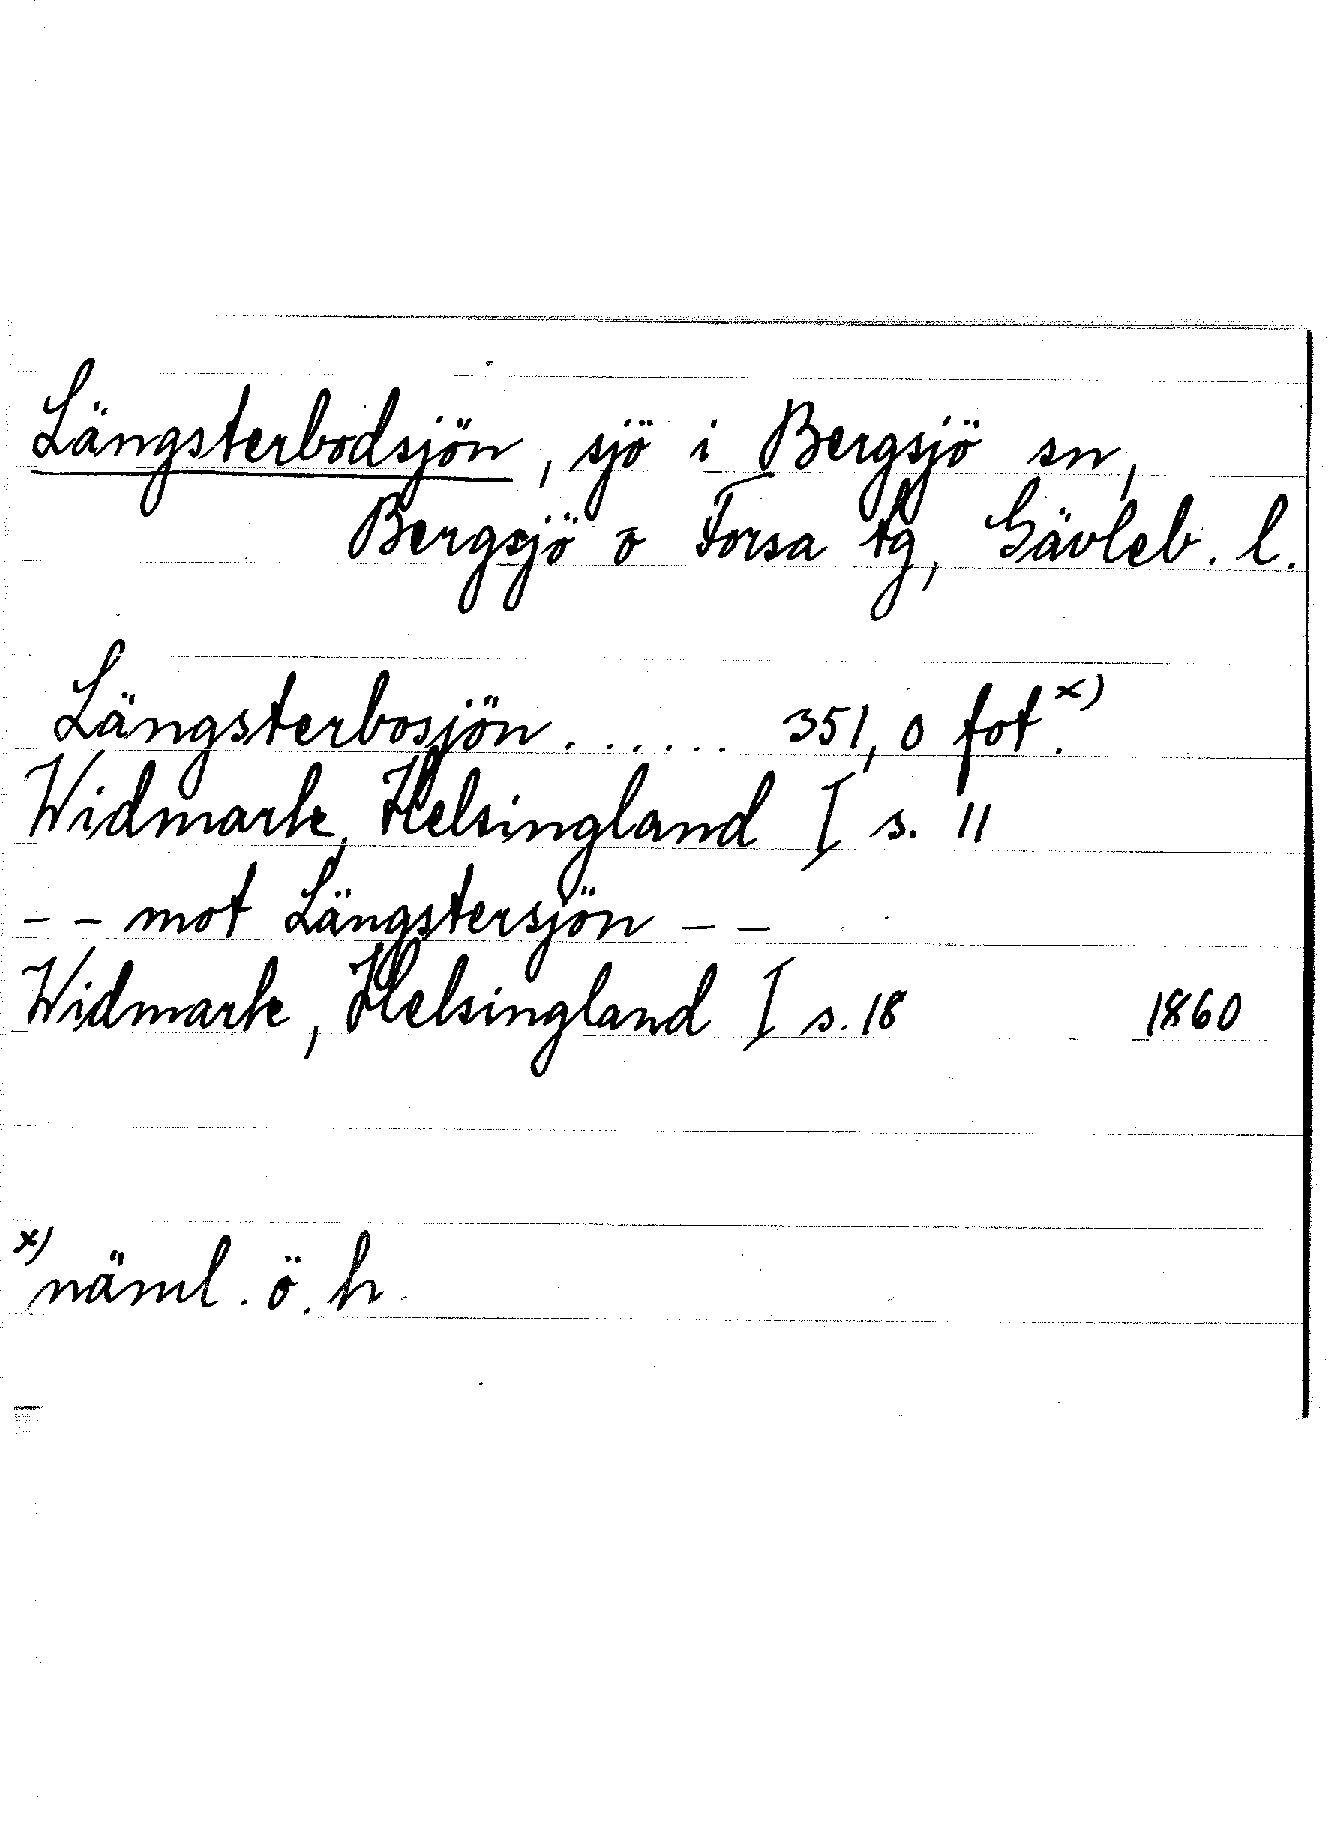 Längsterbodsjön, sjö i Bergsjö sn,
Bergsjö o Forsa tg, Gävleb. l.
Längsterbosjön . . . . . . 351,0 fot.x)
Widmark, Helsingland I s. 11
- - mot Längstersjön - -
Widmark, Helsingland I s. 18 1860
x) näml. ö. h